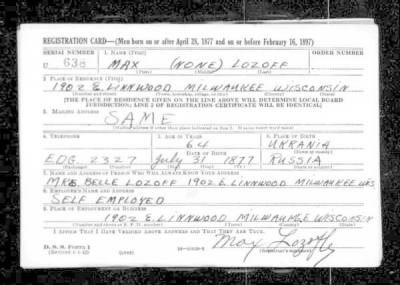 REGISTRATION CARD—(Men born on or after April 28, 1877 and on or before February 16, 1897)
SERIAL NUMBER 1. NAME (Print) ORDER NUMBER
U 638 MAX (NONE) LOZOFF
(First) (Middle) (Last)
2. PLACE OF RESIDENCE (Print)
1902 E. LINNWOOD MILWAUKEE WISCONSIN
(Number and street) (Town, township, village, or city) (County) (State)
[THE PLACE OF RESIDENCE GIVEN ON THE LINE ABOVE WILL DETERMINE LOCAL BOARD
JURISDICTION; LINE 2 OF REGISTRATION CERTIFICATE WILL BE IDENTICAL]
3. MAILING ADDRESS
SAME
[Mailing address if other than place indicated on line 2. If same insert word same]
4. TELEPHONE 5. AGE IN YEARS 6. PLACE OF BIRTH
64 UKRANIA
DATE OF BIRTH (Town or county)
EDG 2327 July 31 1877 RUSSIA
(Exchange) (Number) (Mo.) (Day) (Yr.) (State or country)
7. NAME AND ADDRESS OF PERSON WHO WILL ALWAYS KNOW YOUR ADDRESS
MRS BELLE LOZOFF 1902 E. LINNWOOD MILWAUKEE WIS.
8. EMPLOYER'S NAME AND ADDRESS
SELF EMPLOYED
9. PLACE OF EMPLOYMENT OR BUSINESS
1902 E. LINNWOOD MILWAUKEE WISCONSIN
(Number and street or R. F. D. number) (Town) (County) (State)
I AFFIRM THAT I HAVE VERIFIED ABOVE ANSWERS AND THAT THEY ARE TRUE.
D. S. S. FORM 1
Max Lozoff
(Registrant's signature)